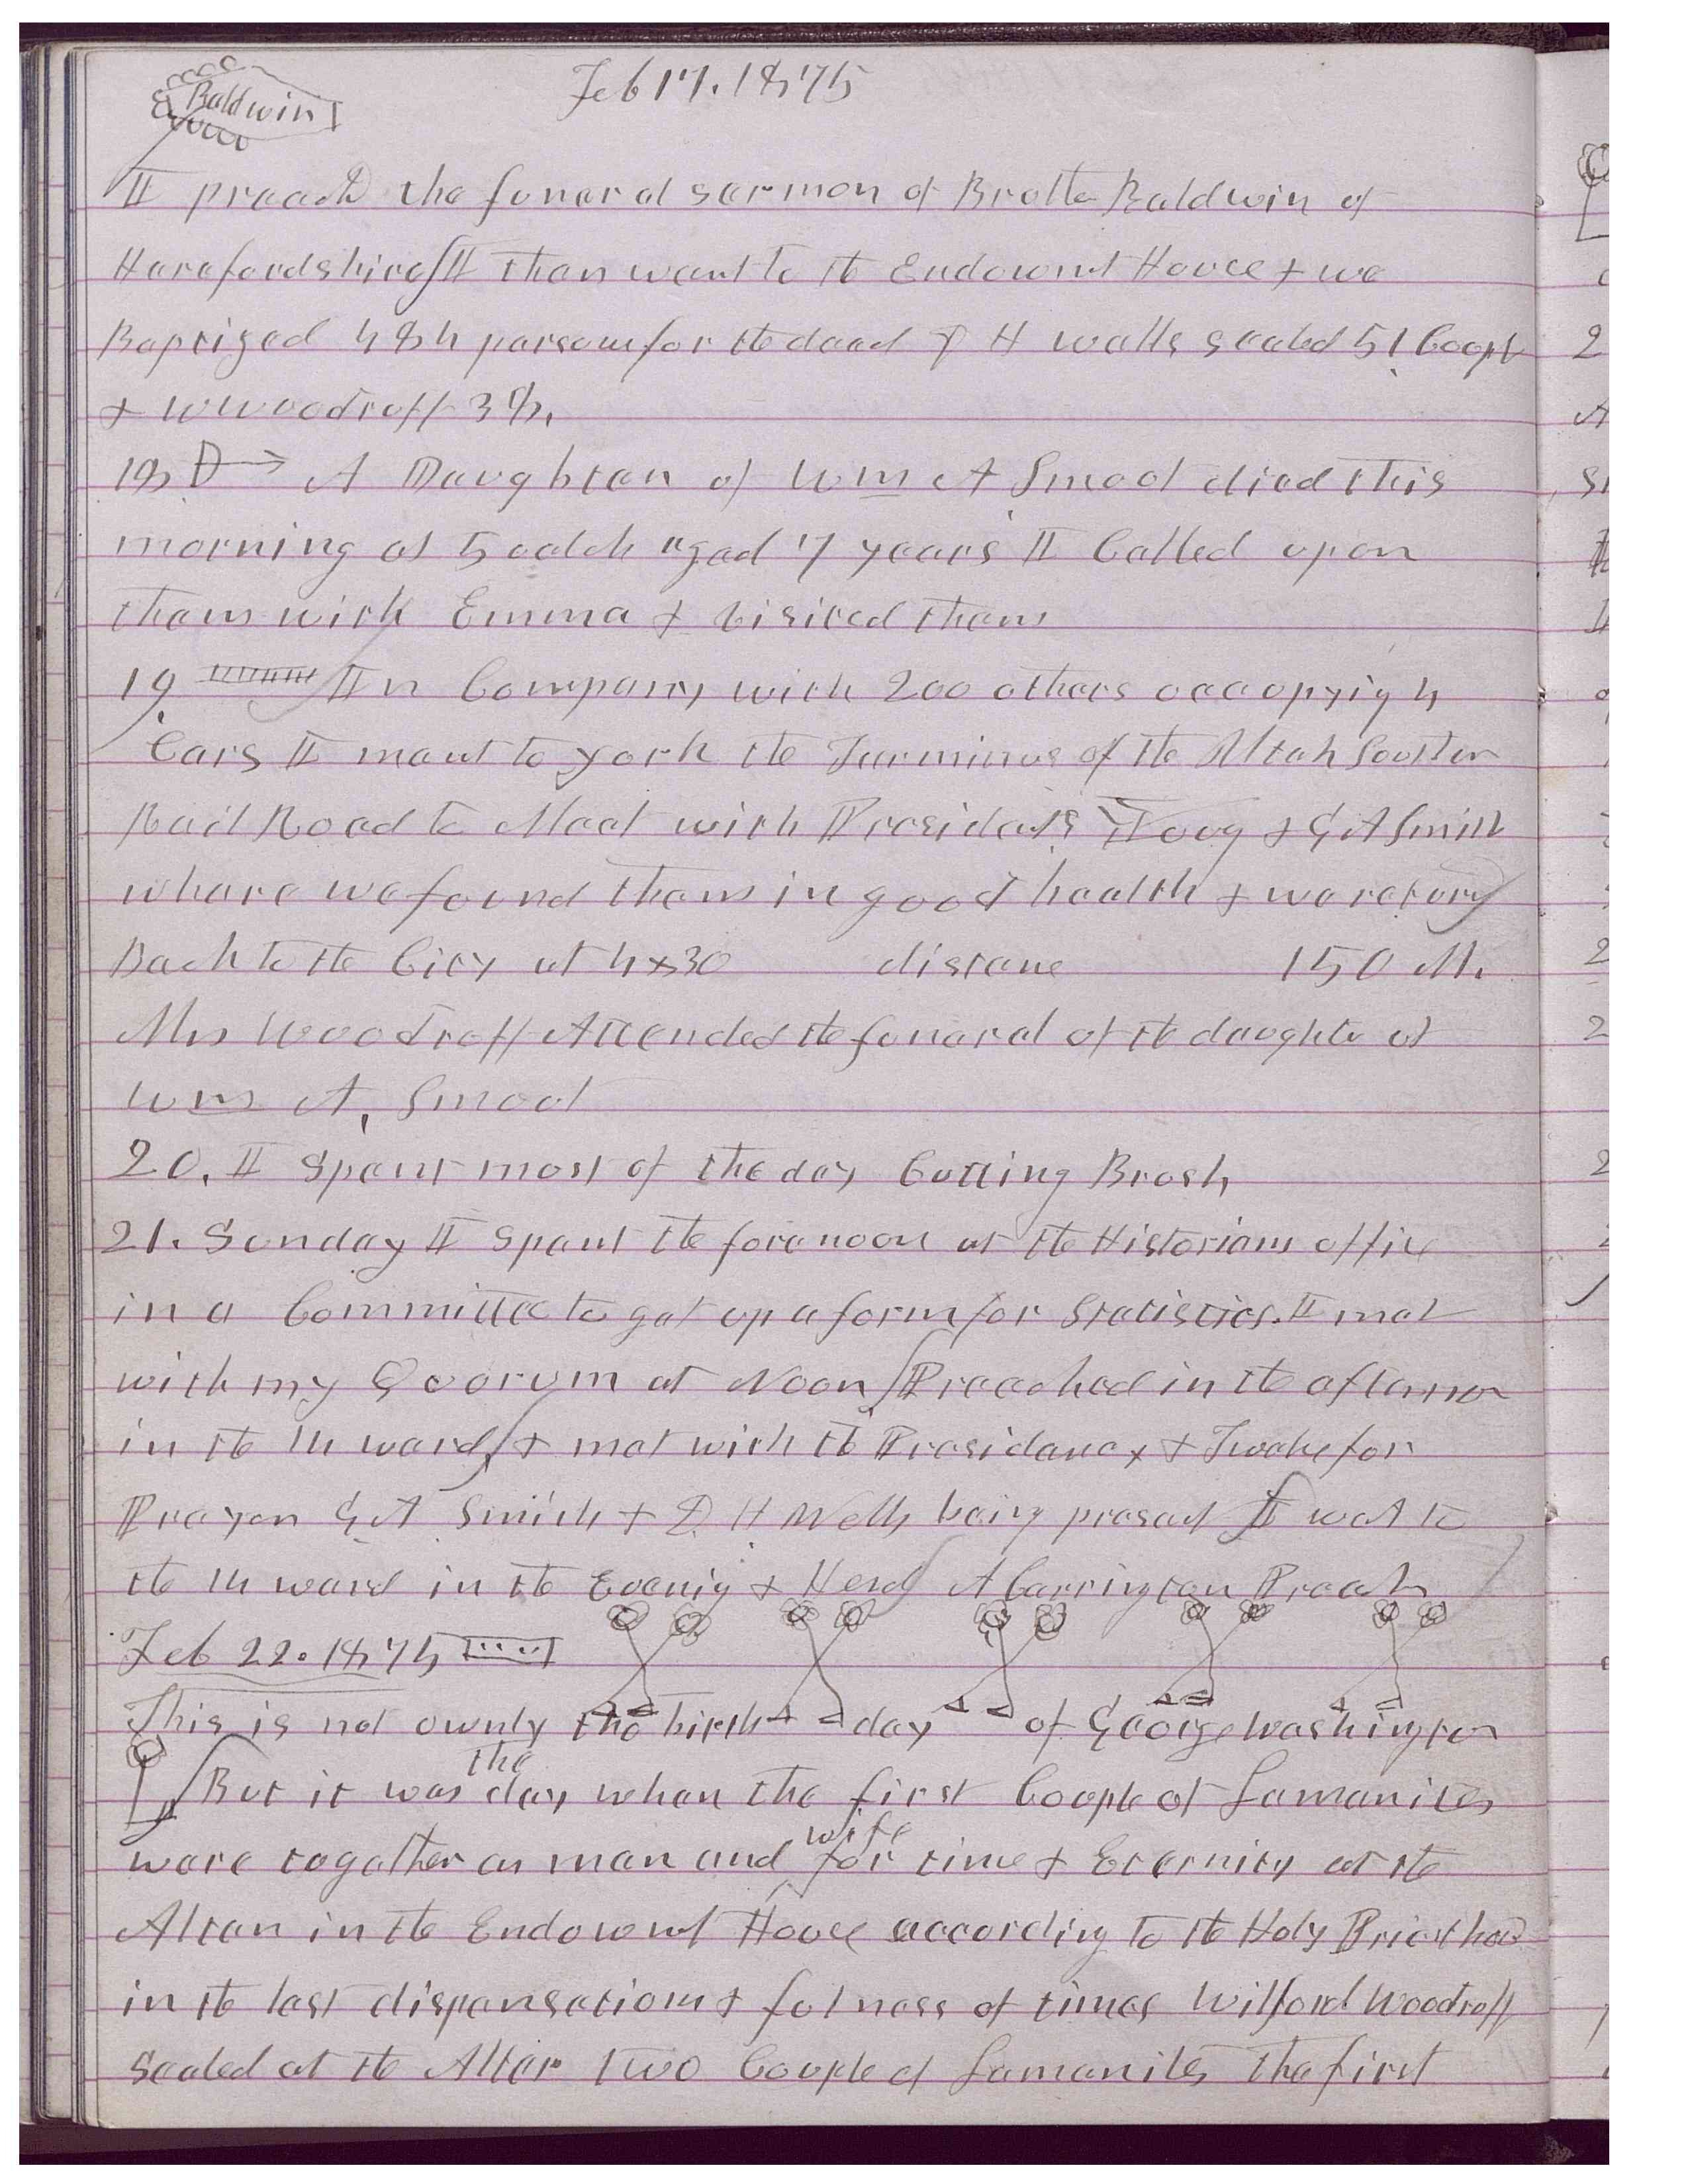 Baldwin
Feb 17. 1875
I preach the funeral sermon of Brother Baldwin of
Herefordshire I then went to the Endowmt House & we
Baptized 484 persons for the dead D H Wells sealed 51 Coupl
& W Woodruff 38.
18 A Daughter of Wm A Smoot died this
morning at 5 oclok aged 7 years I Called upon
them with Emma & visited them
19 In Company with 200 others occupyig 4
Cars I went to York the Terminus of the Utah Southern
Rail Road to Meet with Presidents Young & G A Smith
where we found them in good health & we returnd
Back to the City at 4x30 distane 150 M.
Mrs Woodruff Attended the funeral of the daughter of
Wm A. Smoot
20. I spent most of the day Cutting Brush
21. Sunday I spent the forenoon at the Historians office
in a Committee to get up a form for Statistics. I met
with my Quorum at Noon Preached in the afternoon
in the 14 ward, & met with the Presidency & Twelve for
Prayer G A Smith & D. H Wells being present I wet to
the 14 ward in the Evenig & Herd A Carrington Preach
Feb 22. 1875
This is not ownly the birth day of George Washington
the
But it was day when the first Couple of Lamanites
wife
ware together as man and for time & Eternity at the
Altar in the Endowmt House according to the Holy Priesthood
in the last dispensation & fulness of times Wilford Woodruff
Sealed at the Altar two Couple of Lamanites The first